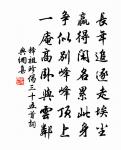 長年追逐走埃尘
贏得閑名累此身
爭似別峰峰頂上
一庵高卧與雲鄰
釋祖珍偈三十五首詞
典網集